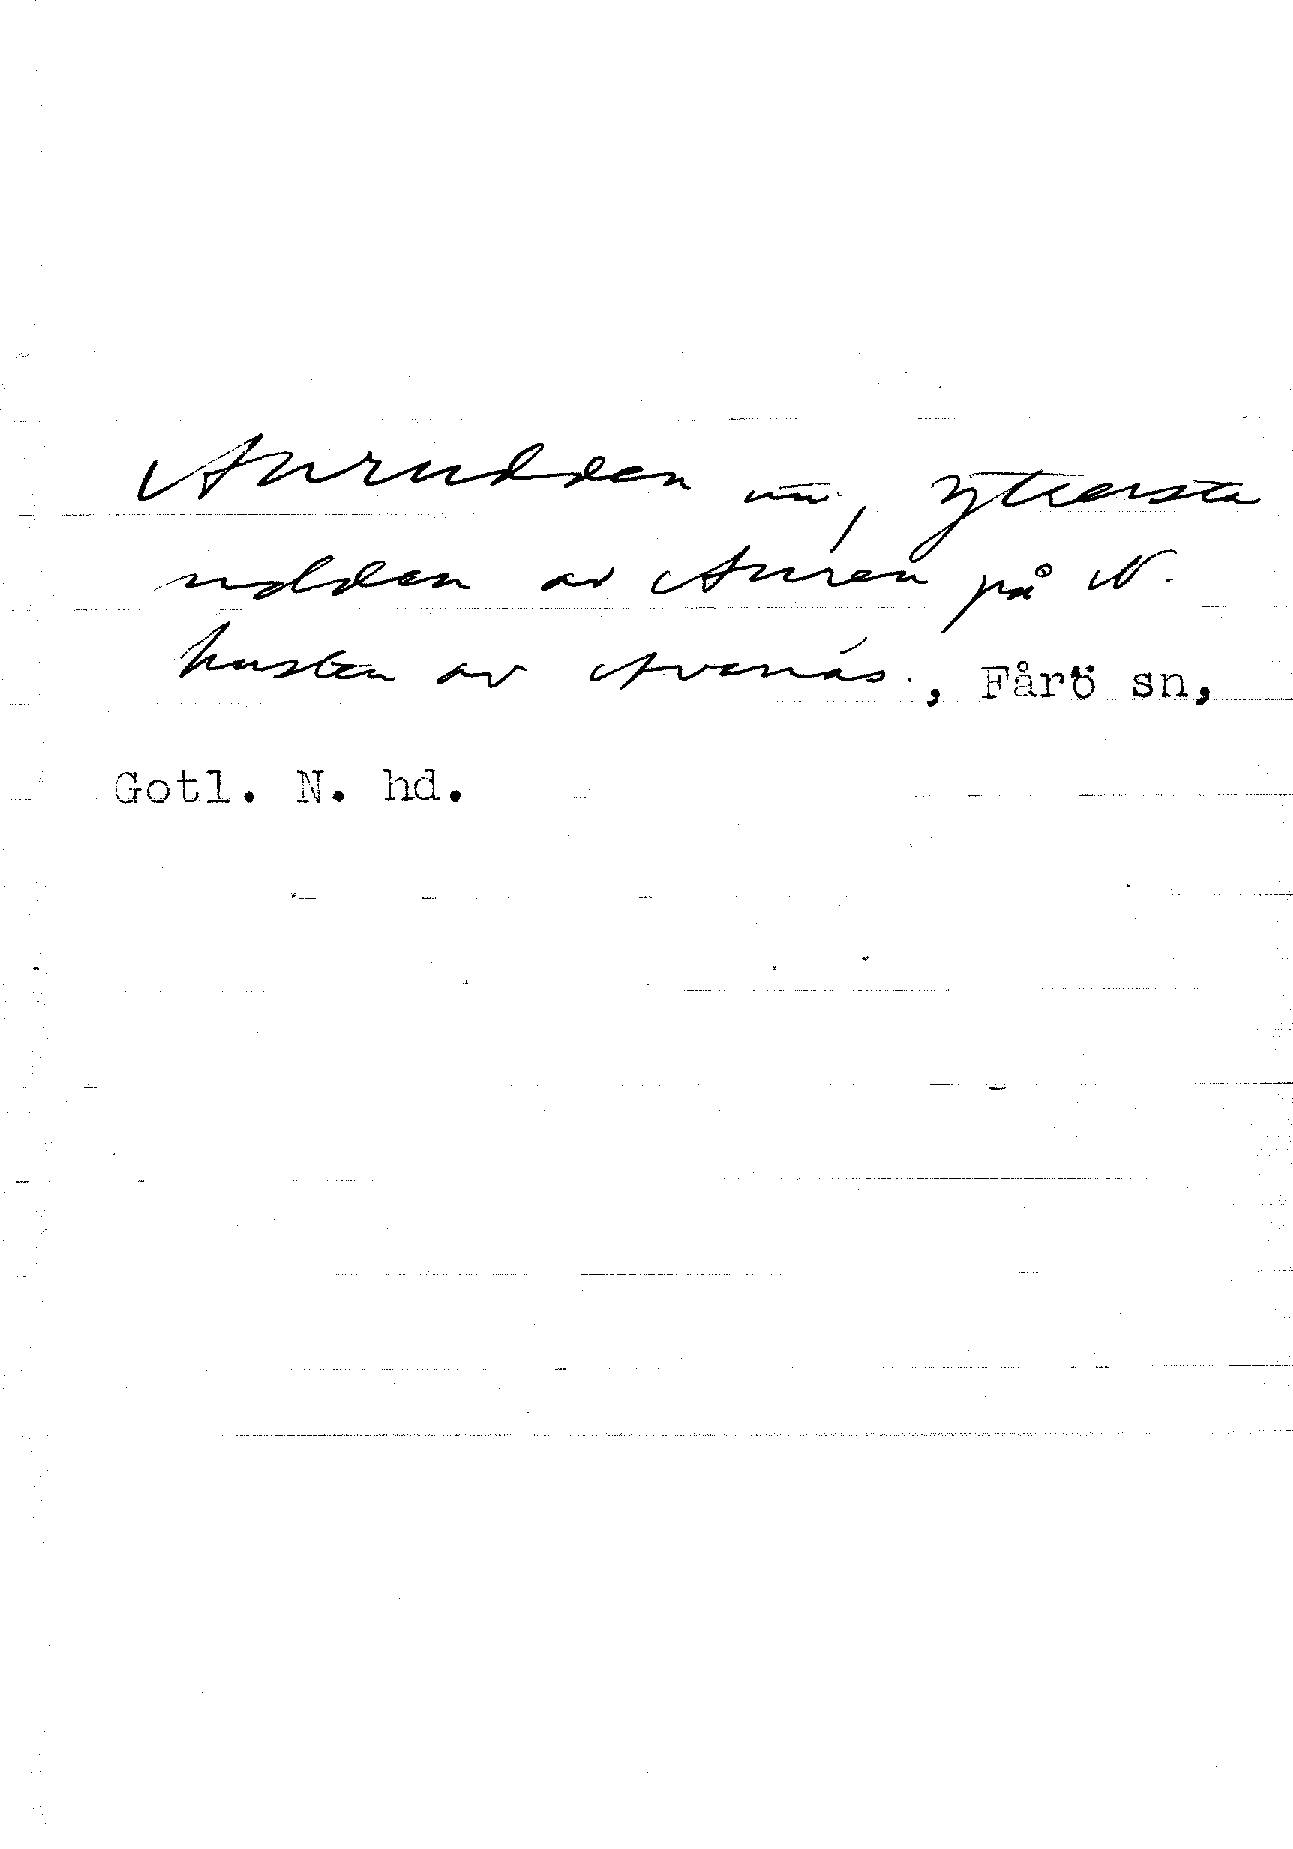 Aurudden nu, yttersta
udden av Auren på N.
kusten av Avanäs., Fårö sn,
Gotl. N. hd.